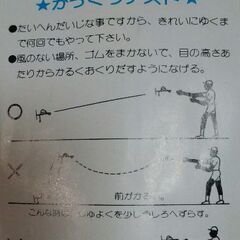 ★かっくうテスト★
●たいへんだいじな事ですから、きれいにゆくま
で何回でもやって下さい。
●風のない場所、ゴムをまかないで、目の高さあ
たりからかるくおくりだすようになげる。
前がかるい
こんな時は、しゅよくを少しうしろへずらす。